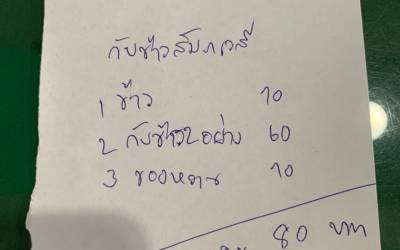 กับข้าวสัมภเวสี
1 ข้าว 10
2 กับข้าว2อย่าง 60
3 ของหวาน 10
80 บาท